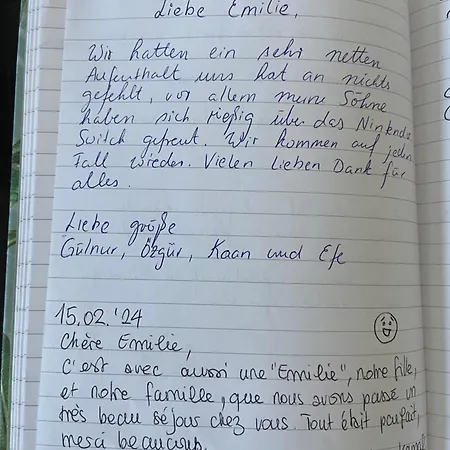 Liebe Emilie,
Wir hatten ein sehr netten
Aufenthalt uns hat an nichts
gefehlt, vor allem meine Söhne
haben sich rießig über das Nintendo
Switch gefreut. Wir kommen auf jeden
Fall wieder. Vielen Lieben Dank für
alles.
Liebe größe
Gülnur, Özgür, Kaan und Efe
15.02.'24
Chère Emilie,
C'est avec aussi une "Emilie", notre fille,
et notre famille, que nous avons passé un
très beau séjour chez vous. Tout était parfait,
merci beaucoup.